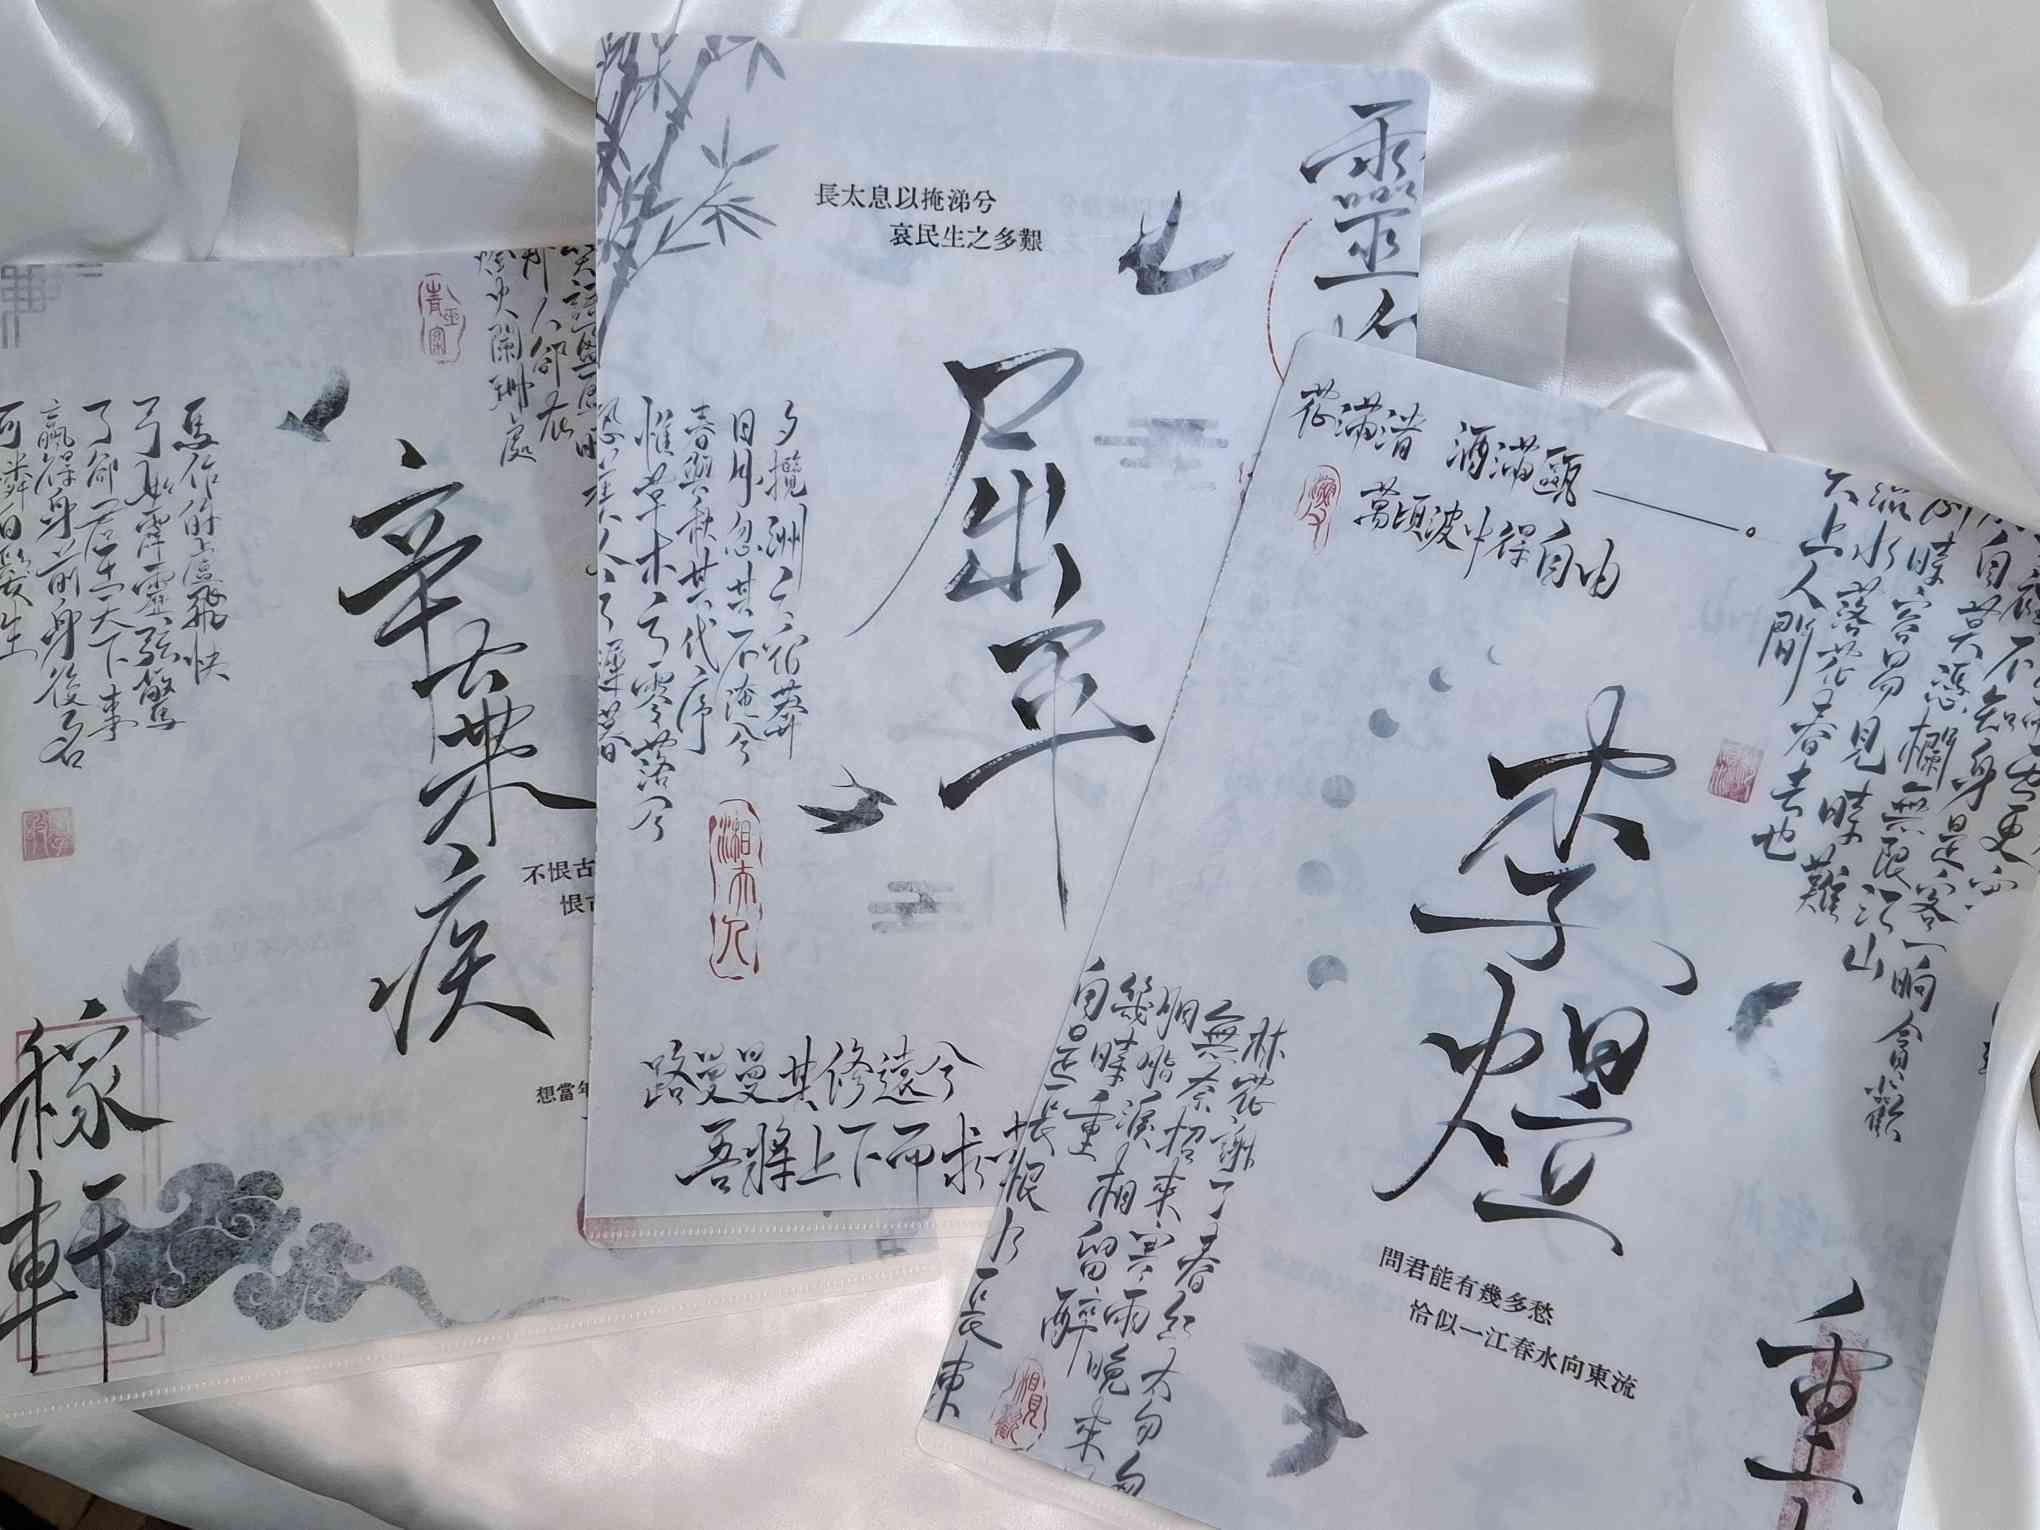 辛棄疾
稼軒
馬作的盧飛快
弓如霹靂弦驚
了卻君王天下事
贏得身前身後名
可憐白髮生
那人卻在
燈火闌珊處
不恨古
恨古
想當年
長太息以掩涕兮
哀民生之多艱
靈
屈平
夕攬洲之宿莽
日月忽其不淹兮
春與秋其代序
惟草木之零落兮
恐美人之遲暮
路曼曼其修遠兮
吾將上下而求索
花滿渚 酒滿甌
萬頃波中得自由
李煜
自
不知身是客
一晌貪歡
獨自莫憑欄
無限江山
別時容易見時難
流水落花春去也
天上人間
林花謝了春紅
太匆匆
無奈朝來寒雨晚來
胭脂淚
相留醉
幾時重
自是人生長恨水長東
問君能有幾多愁
恰似一江春水向東流
重